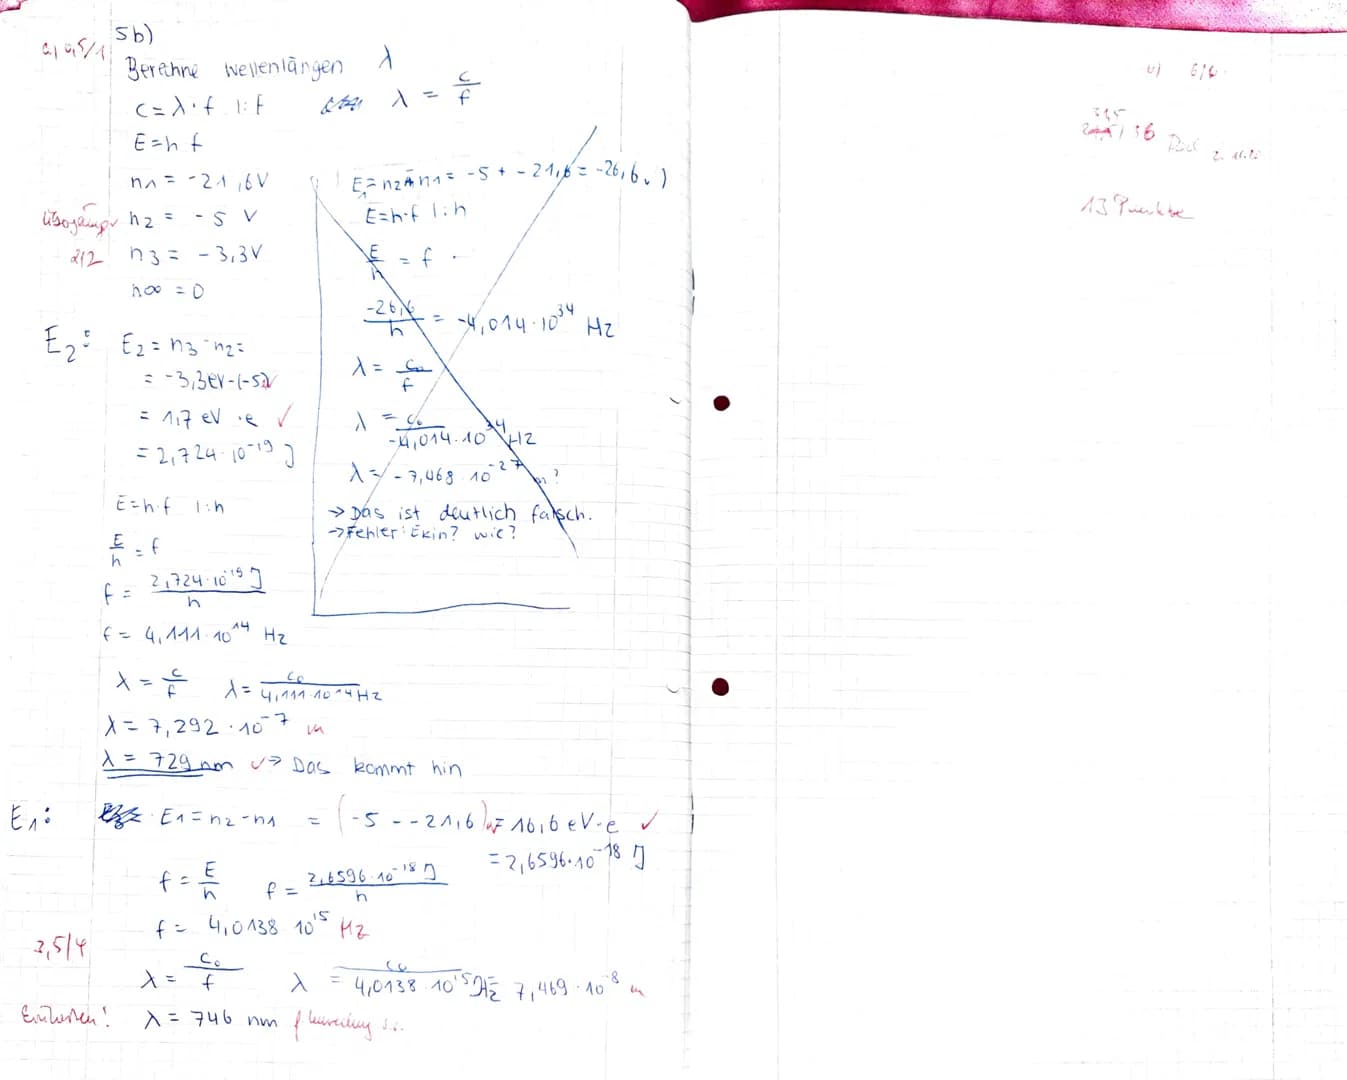 5b)
a) 0,5/1
Berechne Wellenlängen λ
c = λ · f |:f λ = c/f
E = h f
n1 = -21,6V
n2 = -5 V
2/2 n3 = -3,3V
n∞ = 0
E1 = n2 + n1 = -5 + -21,6 = -26,6
E=h·f |:h
E/h = f
-26,6/h = -4,014·10^34 Hz
λ = c0/f
λ = c0/-4,014·10^34 Hz
λ = -7,468·10^-27 m?
→ Das ist deutlich falsch.
→ Fehler: Ekin? wie?
E2: E2 = n3 - n2 =
= -3,3eV-(-5)V
= 1,7 eV · e ✓
= 2,724·10^-19 J
E=h·f |:h
E/h = f
f = 2,724·10^-19 J/h
f = 4,111·10^14 Hz
λ = c/f λ = c0/4,111·10^14 Hz
λ = 7,292·10^-7 m
λ = 729 nm ✓ → Das kommt hin
E1: E1 = n2 - n1 = (-5 - -21,6) = 16,6 eV·e ✓
= 2,6596·10^-18 J
f = E/h f = 2,6596·10^-18 J/h
f = 4,0138 10^15 Hz
3,5/4
λ = c0/f λ = c0/4,0138·10^15 Hz = 7,469·10^-8 m
Einheiten! λ = 746 nm
b) 6/6
36
13 Punkte